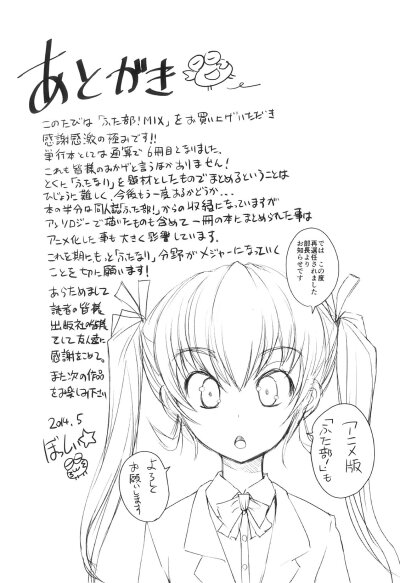 あとがき
このたびは「ふた部!MIX」をお買い上げいただき
感謝感激の極みです!!
単行本としては通算で6冊目となりました。
これも皆様のおかげと言うほかありません!
とくに「ふたなり」を題材としたものでまとめるということは
ひじょうに難しく、今後もう一度あるかどうか…
本の半分は同人誌「ふた部!」からの収録になっていますが
アンソロジーで描いたものも含めて一冊の本にまとめられた事は
アニメ化した事も大きく影響しています。
これを期にもっと「ふたなり」分野がメジャーになっていく
ことを切に願います!
あらためまして
読者の皆様
出版社の皆様
そして友人達に
感謝をこめて。
また次の作品
をお楽しみ下さい
2014.5
ぼっしぃ
では、この度
再選任されました
部長より
お知らせです
アニメ版
「ふた部!」も
よろしく
お願いします